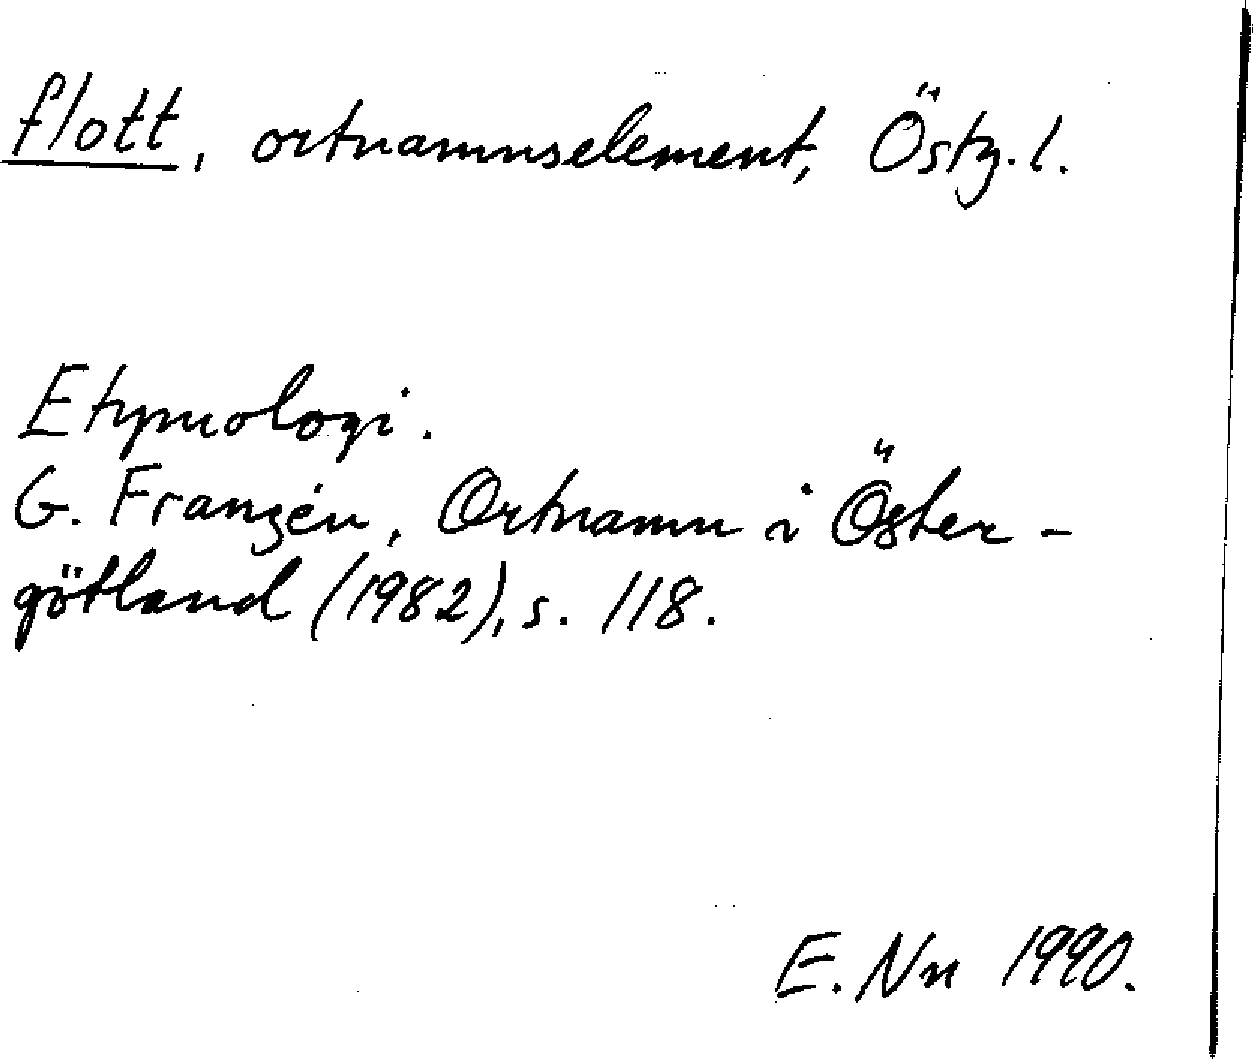 flott, ortnamnselement, Östg.l.
Etymologi.
G. Franzén, Ortnamn i Öster-
götland (1982), s. 118.
E. Nn 1990.